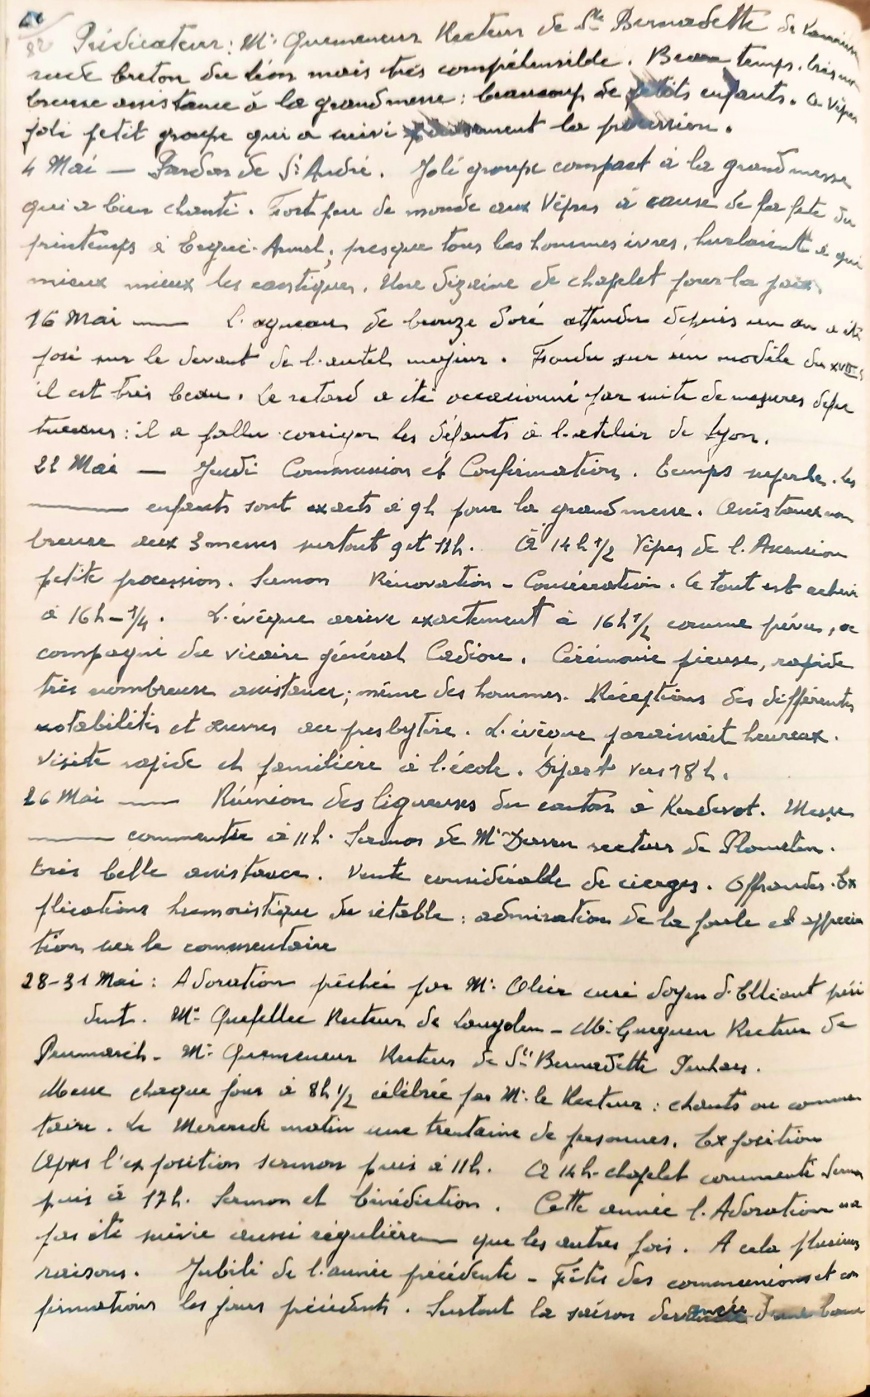 82 Prédicateur : Mr Quemeneur Recteur de Ste Bernadette de
rude breton du Léon mais très compréhensible. Beau temps. très nom
breuse assistance à la grand messe : beaucoup de petits enfants. a Vêpres
joli petit groupe qui a suivi pieusement la procession.
4 Mai — Pardon de St André. Joli groupe compact à la grand messe
qui a bien chanté. Fort peu de monde aux Vêpres à cause de la fête du
printemps à Ergué-Armel ; presque tous les hommes ivres, hurlaient à qui
mieux mieux les cantiques. Une dizaine de chapelet pour la paix.
16 Mai — L'agneau de bronze doré attendu depuis un an a été
posé sur le devant de l'autel majeur. Fondu sur un modèle du XVIIIs
il est très beau. Le retard a été occasionné par suite de mesures défec
tueuses : il a fallu corriger les défauts à l'atelier de Lyon.
22 Mai — Jeudi Communion et Confirmation. Temps superbe. les
— enfants sont exacts à 9h pour la grand messe. Assistance nom
breuse aux 3 messes surtout 9 et 11h. A 14h1/2 Vêpres de l'Ascension
petite procession. Sermon Rénovation - Consécration. Le tout est achevé
à 16h-1/4. L'évêque arrive exactement à 16h1/2 comme prévu, ac
compagné du vicaire général Cadiou. Cérémonie pieuse, rapide
très nombreuse assistance ; même des hommes. Réceptions des différentes
notabilités et œuvres au presbytère. L'évêque paraissait heureux.
Visite rapide et familière à l'école. Départ vers 18h.
26 Mai — Réunion des ligueuses du canton à Kerdevot. Messe
— commentée à 11h. Sermon de Mr recteur de Plomelin.
très belle assistance. Vente considérable de cierges. Offrandes. Ex
plications humoristique du rétable : admiration de la foule et apprécia
tion sur le commentaire
28-31 Mai : Adoration prêchée par Mr. Olier curé doyen d'Elliant prési
dent. Mr. Quefellec Recteur de Langolen - Mr. Gueguen Recteur de
Penmarch - Mr. Quemeneur Recteur de Ste Bernadette Penhars.
Messe chaque jour à 8h1/2 célébrée par Mr. le Recteur : chants ou commen
taire. Le Mercredi matin une trentaine de personnes. Exposition
Après l'exposition sermon puis à 11h. A 14h-chapelet commenté Sermon
puis à 17h. Sermon et bénédiction. Cette année l'Adoration n'a
pas été suivie aussi régulièrement que les autres fois. A cela plusieurs
raisons. Jubilé de l'année précédente - Fêtes des communions et con
firmations les jours précédents. Surtout la saison